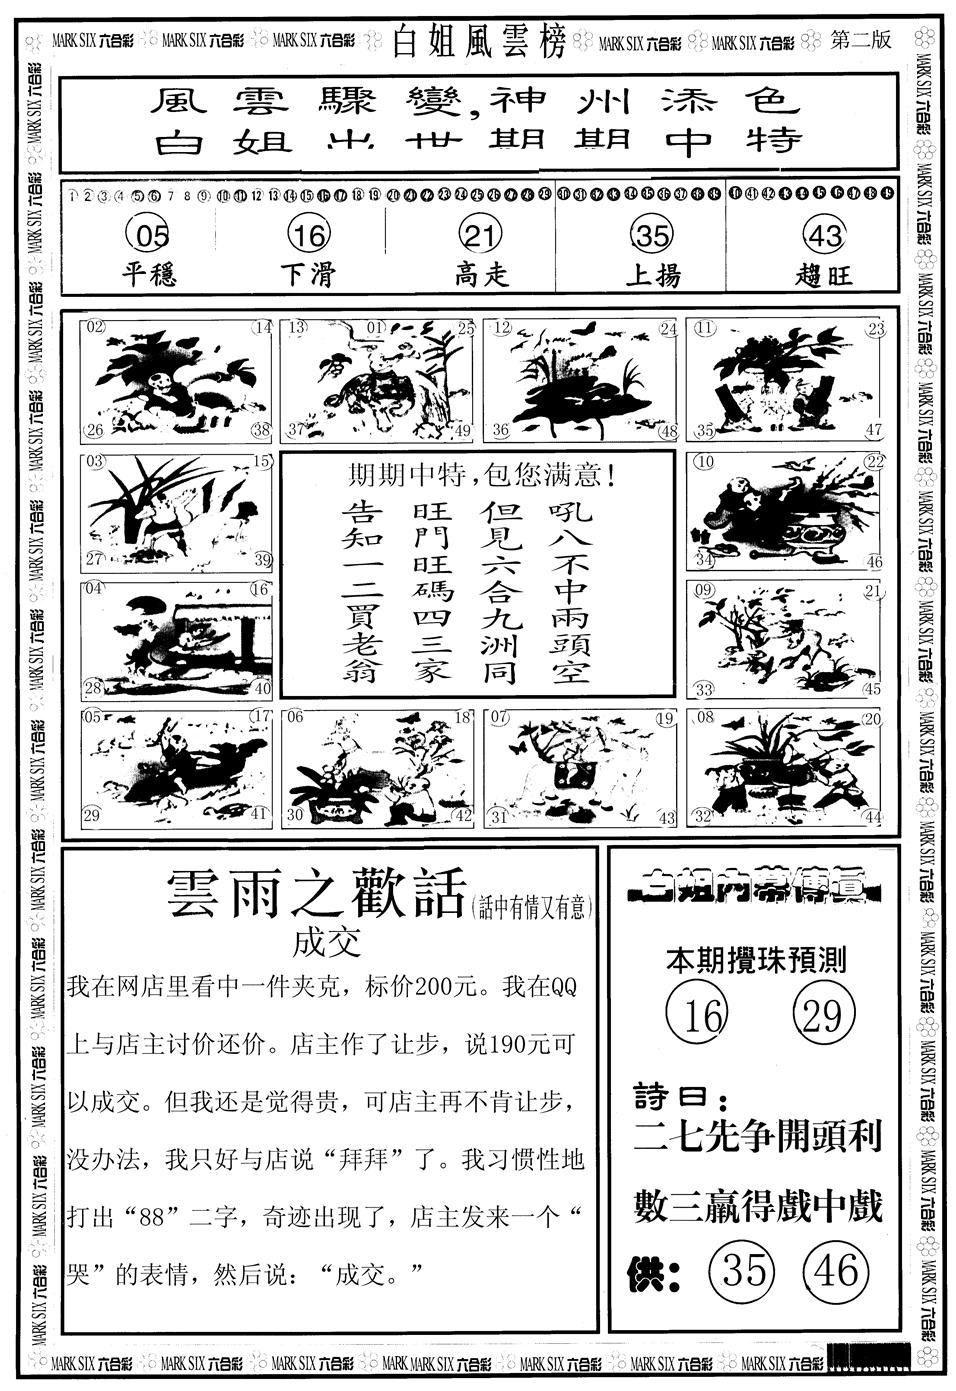 MARK SIX 六合彩 MARK SIX 六合彩 MARK SIX 六合彩 白姐風雲榜 MARK SIX 六合彩 MARK SIX 六合彩 第二版
風雲驟變,神州添色
白姐出世期期中特
1 2 3 4 5 6 7 8 9 10 11 12 13 14 15 16 17 18 19 20 21 22 23 24 25 26 27 28 29 30 31 32 33 34 35 36 37 38 39 40 41 42 43 44 45 46 47 48 49
05 16 21 35 43
平穩 下滑 高走 上揚 趨旺
02 14 13 01 25 12 24 11 23
26 38 37 49 36 48 35 47
03 15 10 22
27 39 34 46
04 16 09 21
28 40 33 45
期期中特,包您满意!
吼八不中兩頭空
但見六合九洲同
旺門旺碼四三家
告知一二買老翁
05 17 06 18 07 19 08 20
29 41 30 42 31 43 32 44
雲雨之歡話(話中有情又有意)
成交
我在网店里看中一件夹克，标价200元。我在QQ
上与店主讨价还价。店主作了让步，说190元可
以成交。但我还是觉得贵，可店主再不肯让步，
没办法，我只好与店说“拜拜”了。我习惯性地
打出“88”二字，奇迹出现了，店主发来一个“
哭”的表情，然后说：“成交。”
白姐内幕傳真
本期攪珠預測
16 29
詩曰：
二七先争開頭利
數三贏得戲中戲
供：35 46
MARK SIX 六合彩 MARK SIX 六合彩 MARK SIX 六合彩 MARK MARK SIX 六合彩 MARK SIX 六合彩 MARK SIX 六合彩 MARK SIX 六合彩